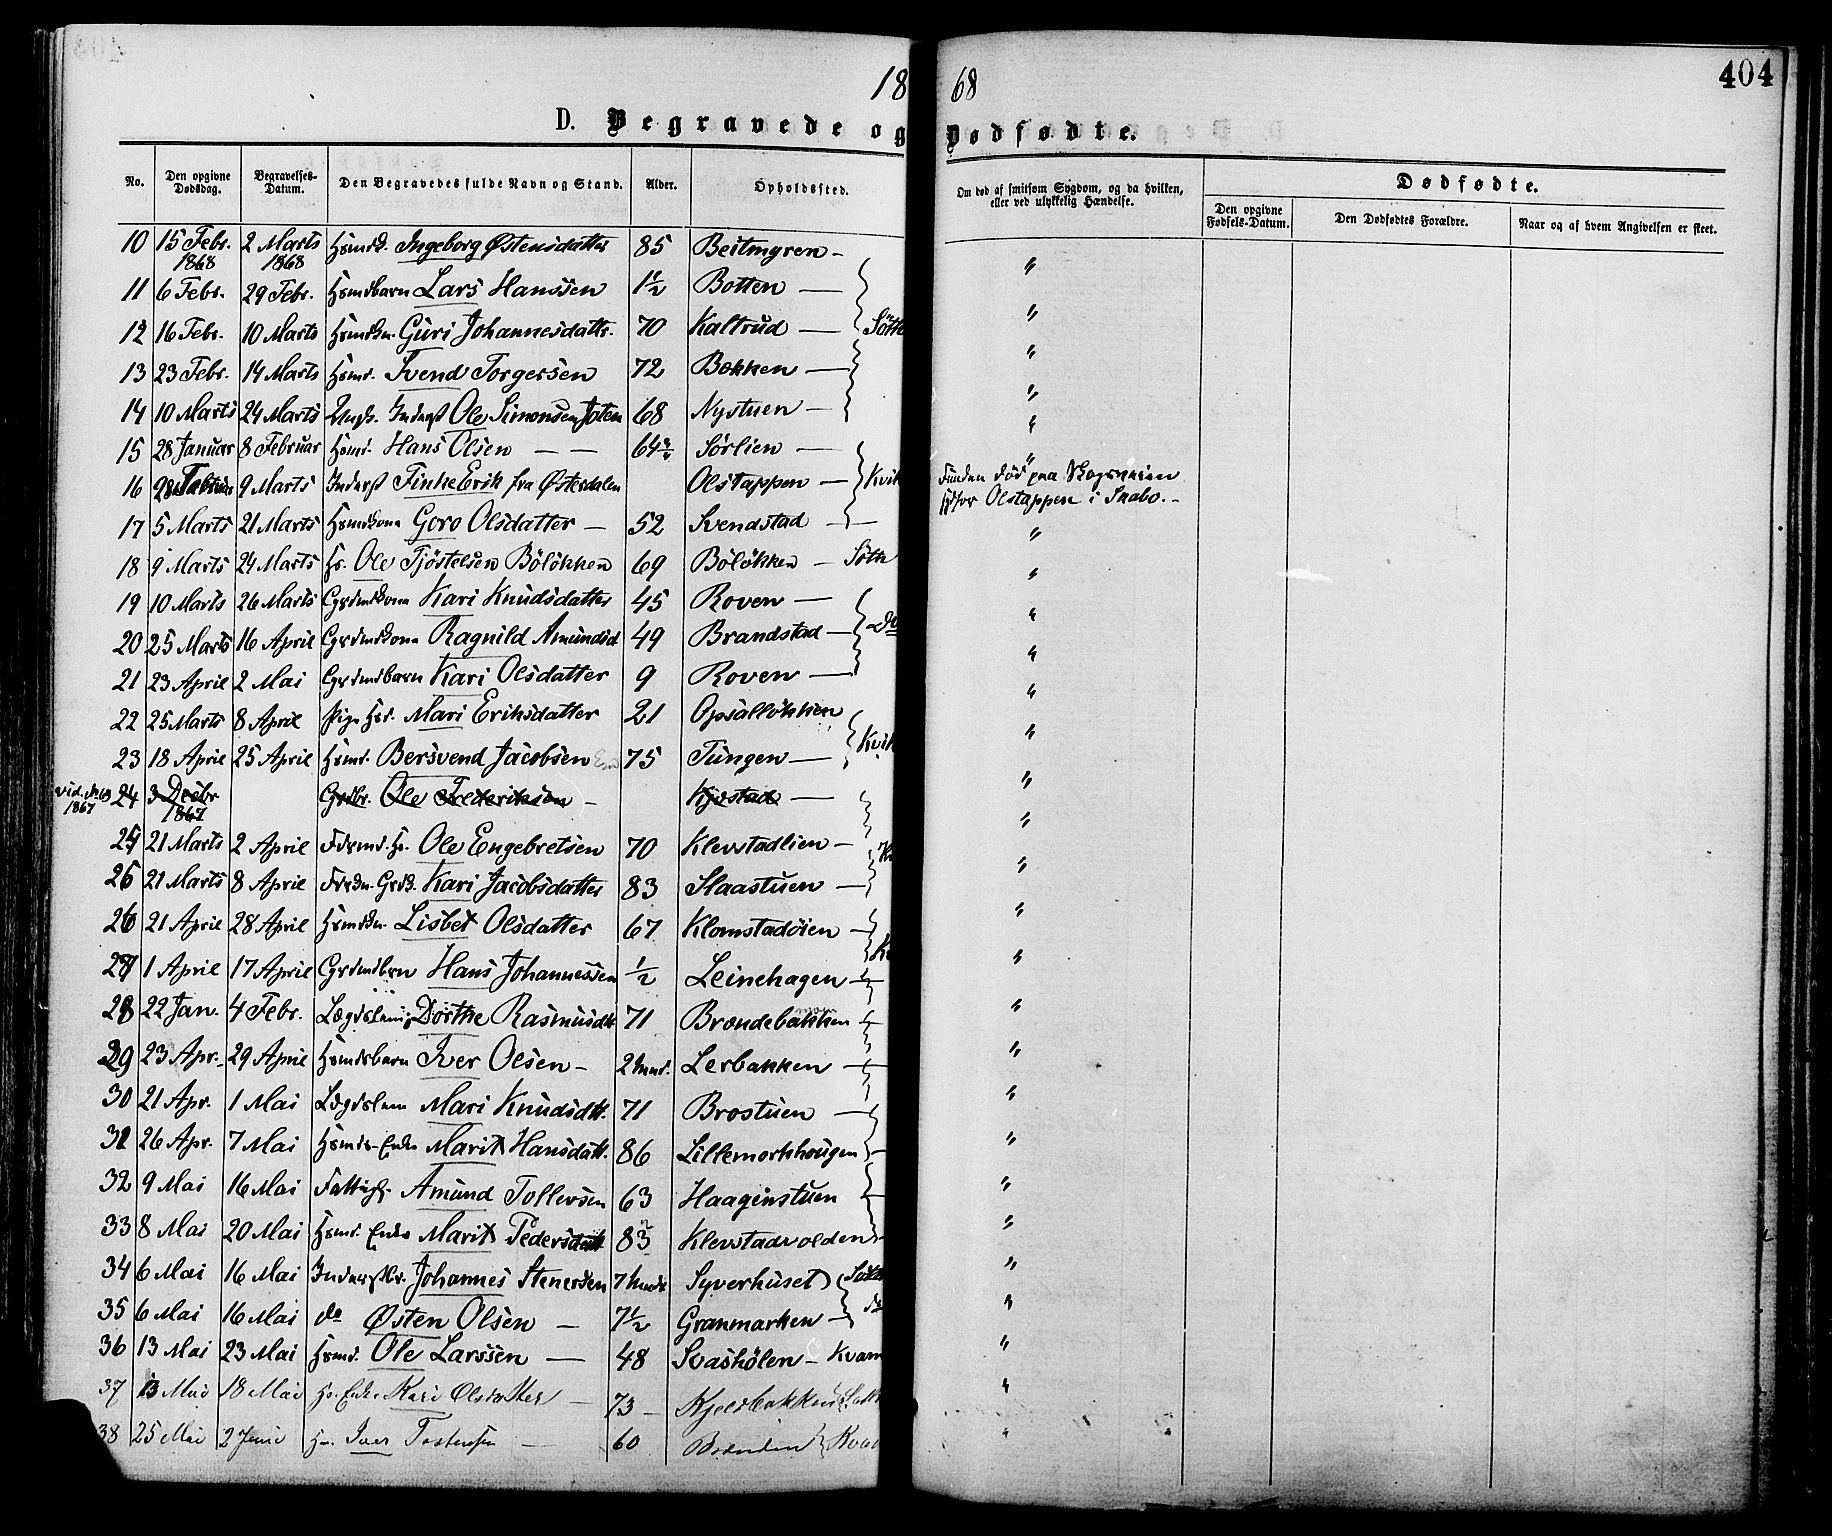 18 68 404
D. Begravede og Dødfødte.
No. Den opgivne Dødsdag. Begravelses-Datum. Den Begravedes fulde Navn og Stand. Alder. Opholdssted. Om død af smitsom Sygdom, og da hvilken, eller ved ulykkelig Hændelse. Dødfødte.
Den opgivne Fødsels-Datum. Den Dødfødtes Forældre. Naar og af hvem Angivelsen er skeet.
10 15 Febr. 1868 2 Marts 1868 Ingeborg Østensdatter 85 Beitmyren - "
11 6 Febr. 29 Febr. Hsmdbarn Lars Hanssen 1½ Botten — "
12 16 Febr. 10 Marts Hsmdkn. Guri Johannesdattr. 70 Kaltrud — "
13 23 Febr. 14 Marts Hsmd. Svend Torgersen 72 Bækken — "
14 10 Marts 24 Marts Inderst Ole Simonsen 68 Nystuen — "
15 28 Januar 8 Februar Hsmd. Hans Olsen — — 64¾ Sørlien — "
16 28 Februar 9 Marts Inderst Finke Erik fra Østerdalen Olstappen — Kvik Funden død paa Skogsveien
Olstappen i Skabo. -
17 5 Marts 21 Marts Hsmdkone Goro Olsdatter — 52 Svendstad — "
18 9 Marts 24 Marts Hs. Ole Tjøstelsen Böløkken 69 Böløkken — Söth "
19 10 Marts 26 Marts Grdmdkone Kari Knudsdatter 45 Roven — "
20 25 Marts 16 April Grdmdkone Ragnild Amundsd 49 Brandstad — "
21 23 April 2 Mai Grdmdbarn Kari Olsdatter 9 Roven — "
22 25 Marts 8 April Pige Hsr. Mari Eriksdatter 21 Opsalløkken "
23 18 April 25 April Hsmd. Bersvend Jacobsen 75 Tungen — Kvik "
vid. No 63 1867 24 3 Decbr 1867 Grdbr. Ole Frederiksen - Kjøstad — "
25 21 Marts 2 April Fdrmd. Hs. Ole Engebretsen 70 Klevstadlien - "
26 21 Marts 8 April Kari Jacobsdatter 83 Slaastuen — "
26 21 April 28 April Hsmdkn. Lisbet Olsdatter 67 Klomstadöien — "
27 1 April 17 April Grdmdbrn Hans Johannessen ½ Leinehagen — "
28 22 Jan. 4 Febr. Lægdslem Dorthe Rasmusdtr 71 Brændebakken "
29 23 Apr. 29 April Hsmdsbarn Iver Olsen - 2 Lerbakken — "
30 21 Apr. 1 Mai Lægdslem Mari Knudsdtr. 71 Brostuen — "
31 26 Apr. 7 Mai Hsmds-Enke Marit Hansdatt. 86 Lillemorkhougen "
32 9 Mai 16 Mai Fattigl. Amund Tollevsen 63 Haagenstuen "
33 8 Mai 20 Mai Hsmd. Enke Marit Pedersdatt. 83 Klevstadvolden "
34 6 Mai 16 Mai Johannes Stenersen 7 Syverhuset "
35 6 Mai 16 Mai do Østen Olsen — 7½ Granmarken — "
36 13 Mai 23 Mai Hsmd. Ole Larssen — 48 Svashölen - Kvam "
37 13 Mai 18 Mai Hs. Enke Kari Olsdatter — 73 - Kjeldbakken "
38 25 Mai 2 Juni Hs. Iver Tostensen — 60 Brænden "